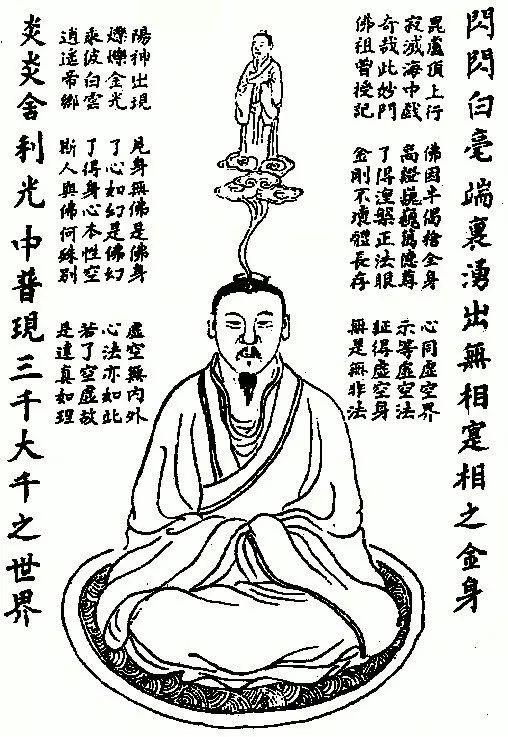 閃閃白毫端裏湧出無相寔相之金身
毘盧頂上行
寂滅海中戲
奇哉此妙門
佛祖曾授記
佛因半偈捨全身
高證巍巍萬德尊
了得涅槃正法眼
金剛不壞體長存
心同虛空界
示等虛空法
証得虛空身
無是無非法
陽神出現
爍爍金光
乘彼白雲
逍遙帝鄉
見身無佛是佛身
了心如幻是佛幻
了得身心本性空
斯人與佛何殊別
虛空無內外
心法亦如此
若了空虛故
是達真如理
炎炎舍利光中普現三千大千之世界